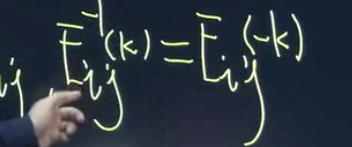 ij, E_{ij}^{-1}(k) = E_{ij}(-k)